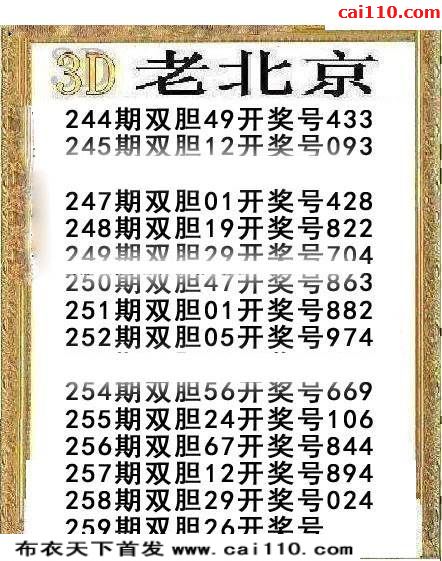 cai110.com
3D 老北京
244期双胆49开奖号433
245期双胆12开奖号093
247期双胆01开奖号428
248期双胆19开奖号822
249期双胆29开奖号704
250期双胆47开奖号863
251期双胆01开奖号882
252期双胆05开奖号974
254期双胆56开奖号669
255期双胆24开奖号106
256期双胆67开奖号844
257期双胆12开奖号894
258期双胆29开奖号024
259期双胆26开奖号
布衣天下首发 www.cai110.com